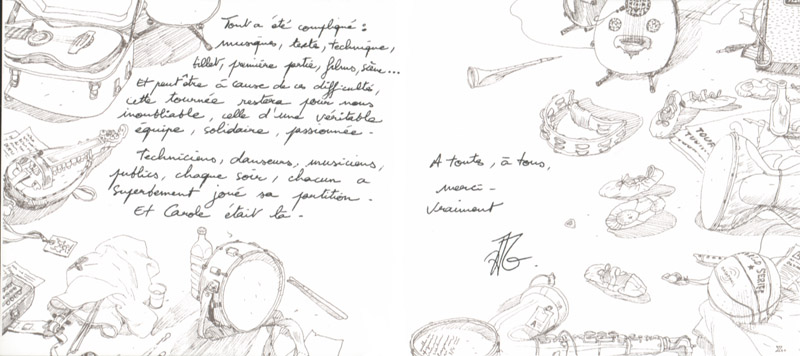 Tout a été compliqué :
musiques, texte, technique,
billet, première partie, films, scène...
Et peut être à cause de ces difficultés,
cette tournée restera pour nous
inoubliable, celle d'une véritable
équipe, solidaire, passionnée -
Techniciens, danseurs, musiciens,
publics, chaque soir, chacun a
superbement joué sa partition -
Et Carole était là -
A toutes, à tous,
merci -
vraiment